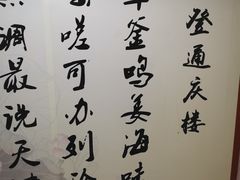 登通庆楼
釜鸣姜海味
嗟可办列
调最说天